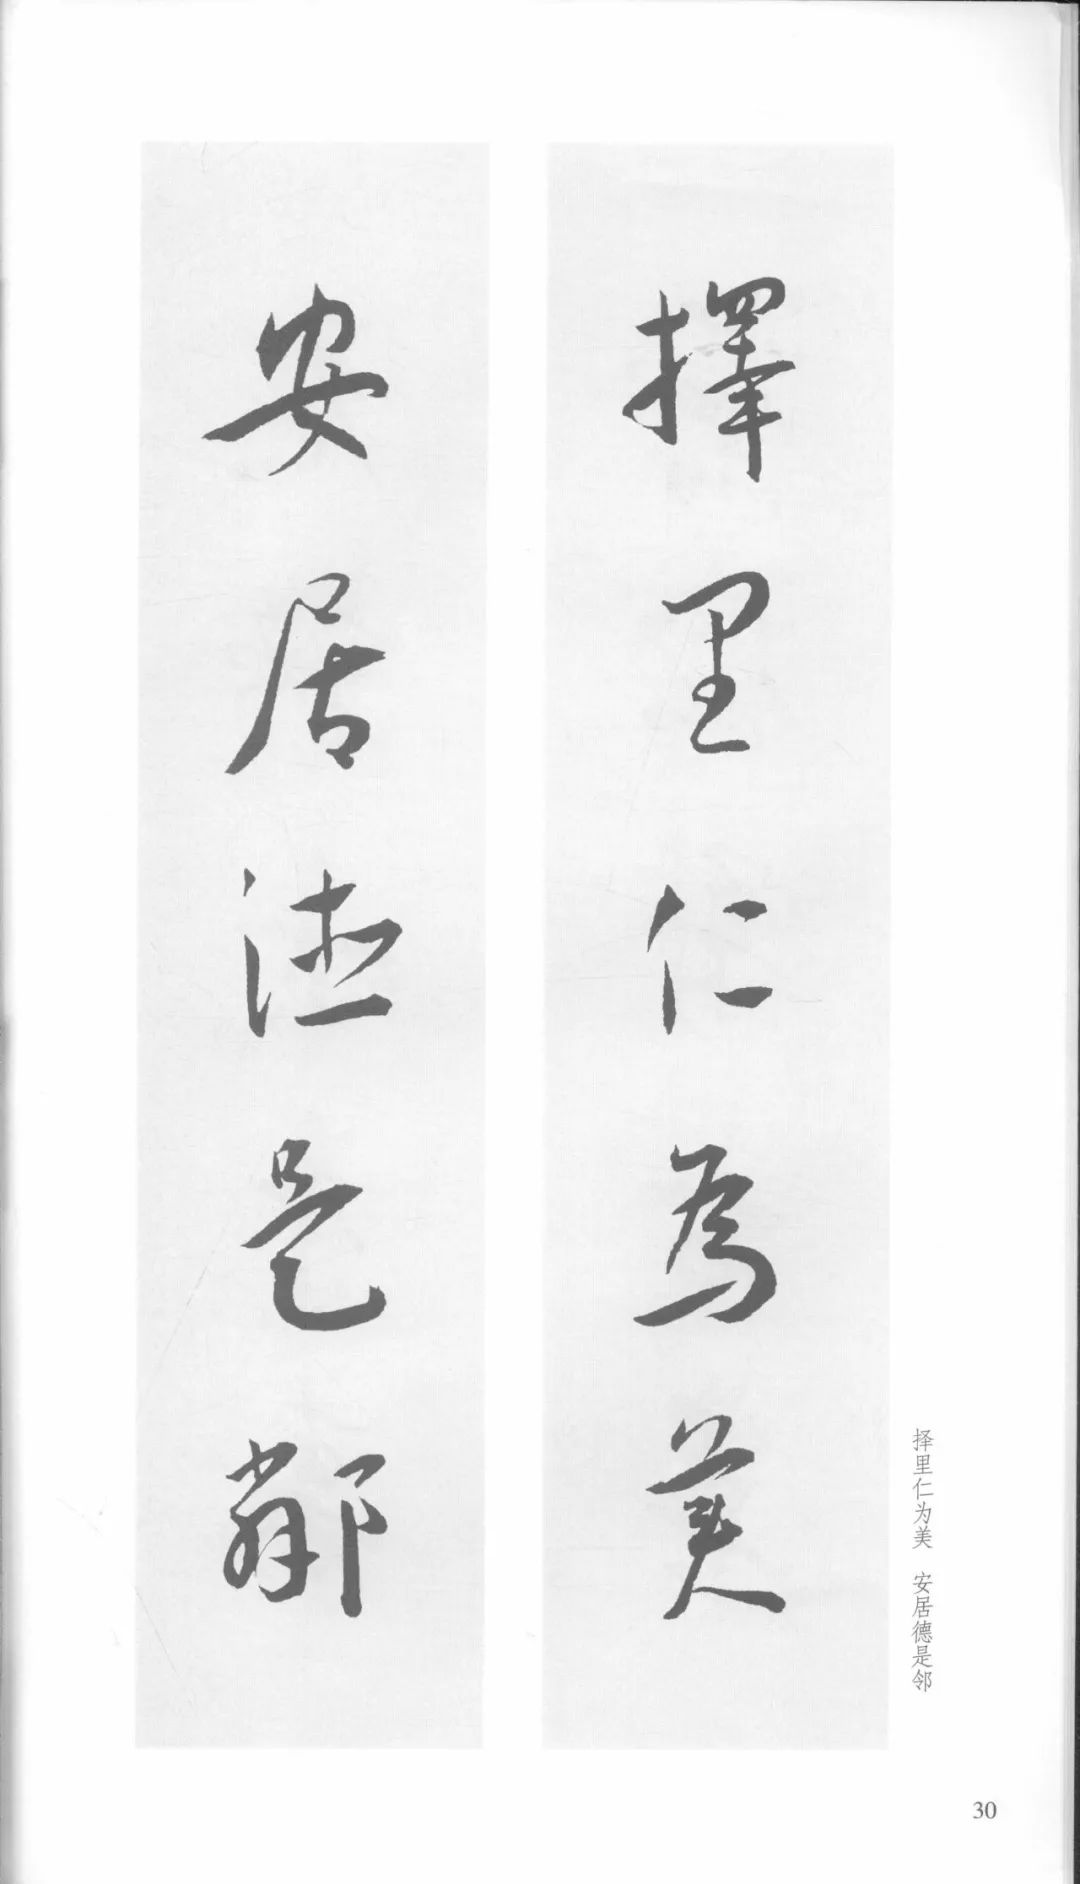 擇里仁為美
安居德是鄰
择里仁为美　安居德是邻
30